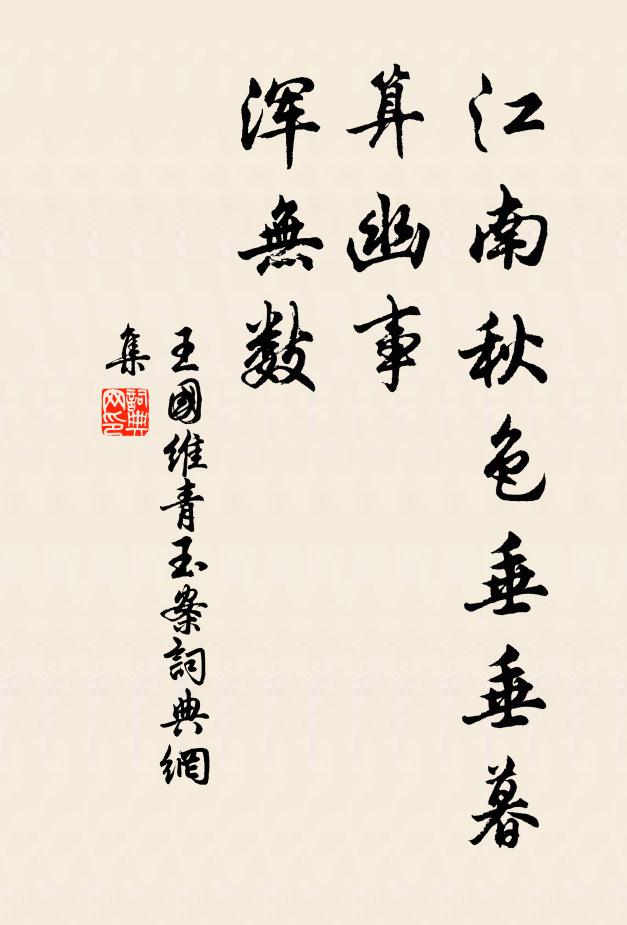 江南秋色垂垂暮
算幽事
渾無數
王國維青玉案詞典網
集
詞典
网印